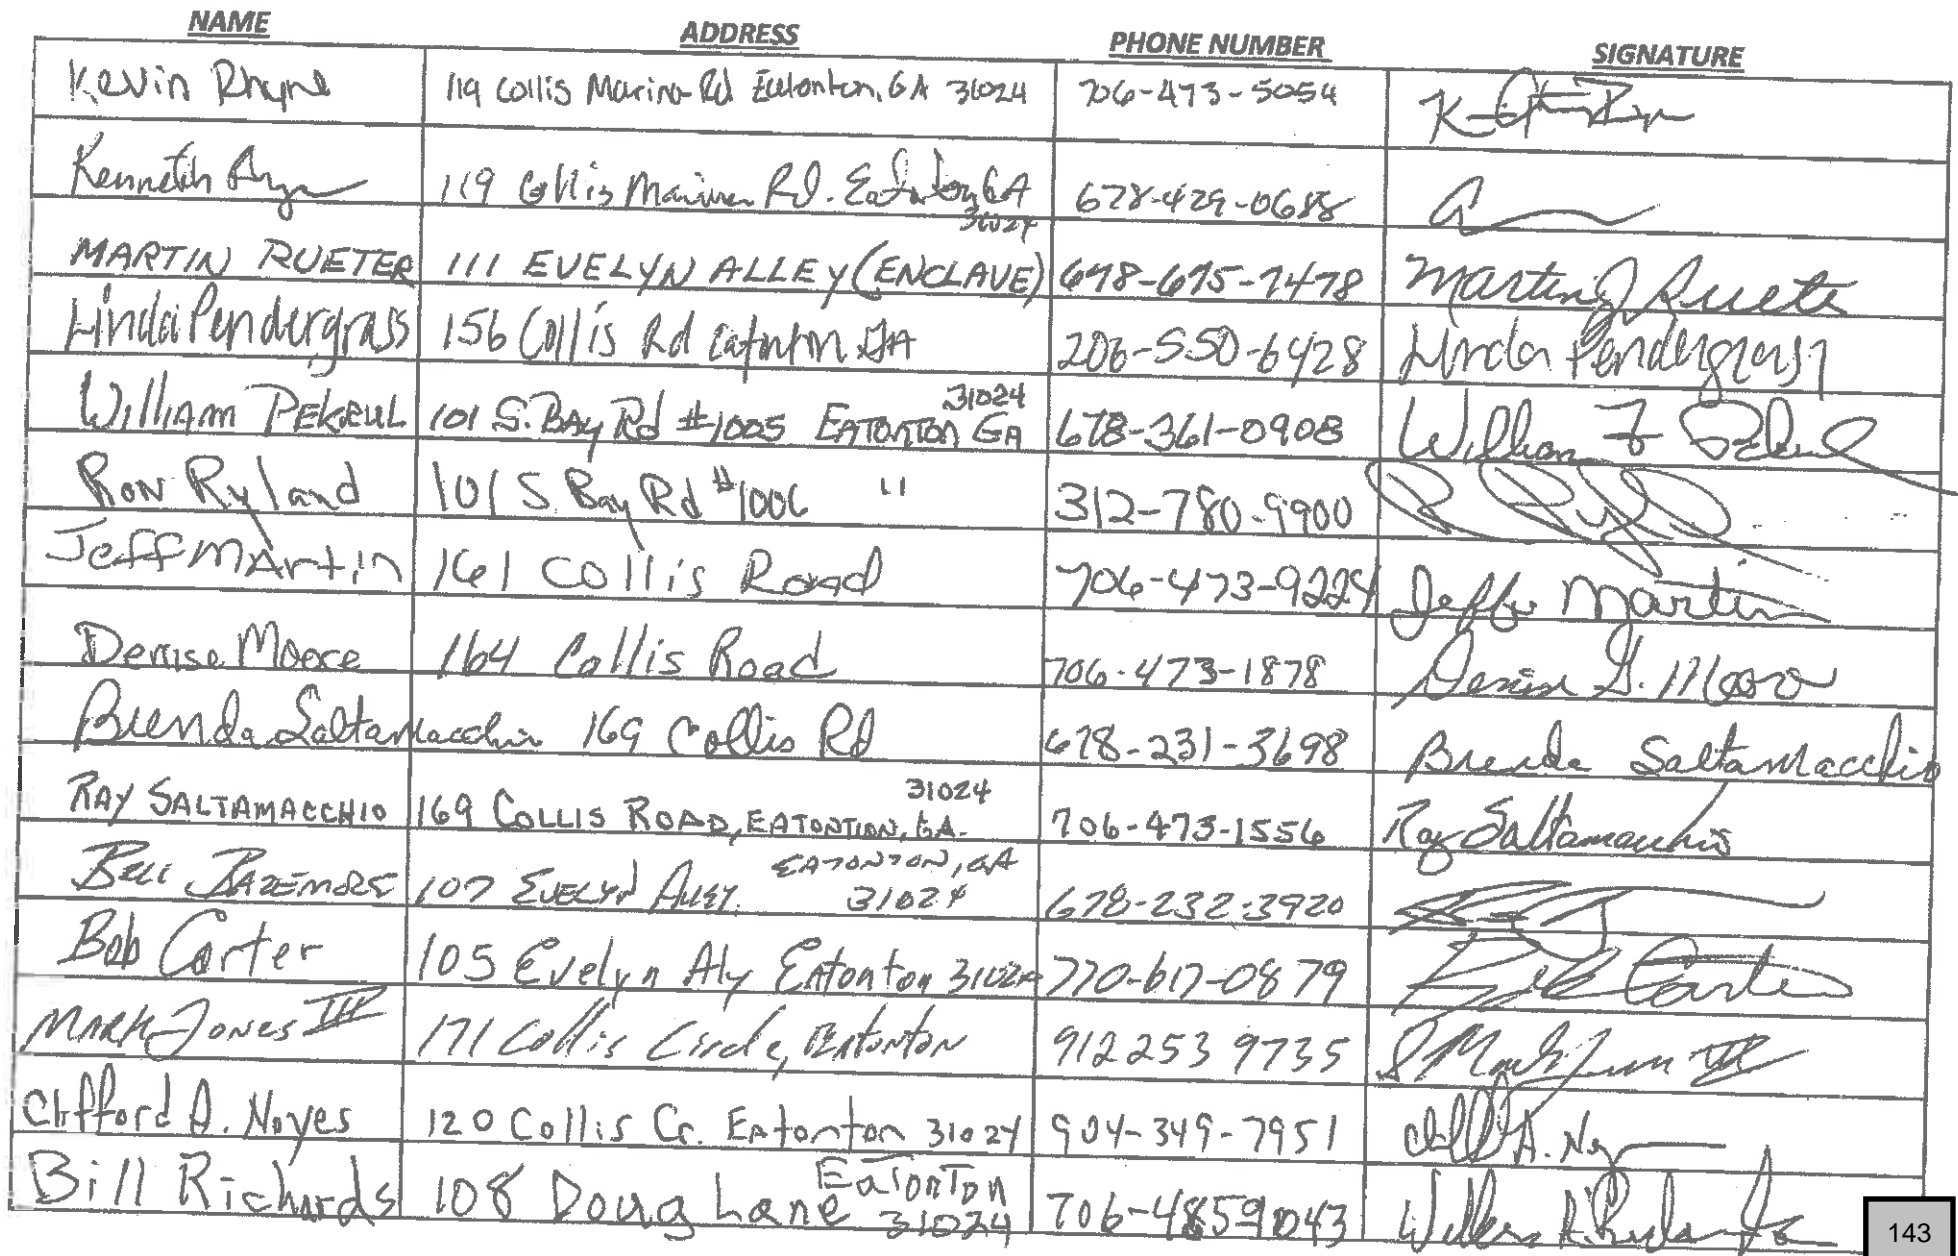 NAME ADDRESS PHONE NUMBER SIGNATURE
Kevin Rhyne 119 Collis Marina Rd Eatonton, GA 31024 706-473-5054
Kenneth 119 Collis Marina Rd. Eatonton GA 678-429-0688
31024
MARTIN RUETER 111 EVELYN ALLEY (ENCLAVE) 678-675-7478 Martin J Rueter
Linda Pendergrass 156 Collis Rd Eatonton GA 206-550-6428 Linda Pendergrass
31024
William PEKRUL 101 S. BAY Rd #1005 EATONTON GA 678-361-0908 William F Pekrul
RON Ryland 101 S. Bay Rd #1006 " 312-780-9900
Jeff MArtin 161 Collis Road 706-473-9224 Jeff Martin
Denise Moore 164 Collis Road 706-473-1878 Denise G. Moore
Brenda Saltamacchio 169 Collis Rd 678-231-3698 Brenda Saltamacchio
31024
RAY SALTAMACCHIO 169 COLLIS ROAD, EATONTION, GA. 706-473-1556 Ray Saltamacchio
EATONTON, GA
BILL BAZEMORE 107 EVELYN ALLEY. 31024 678-232-3920
Bob Carter 105 Evelyn Aly Eatonton 31024 770-617-0879 Bob Carter
MARK JONES III 171 Collis Circle, EATONTON 912 253 9735
Clifford A. Noyes 120 Collis Cr. Eatonton 31024 904-349-7951
Eatonton
Bill Richards 108 Doug Lane 31024 706-485 9043
143